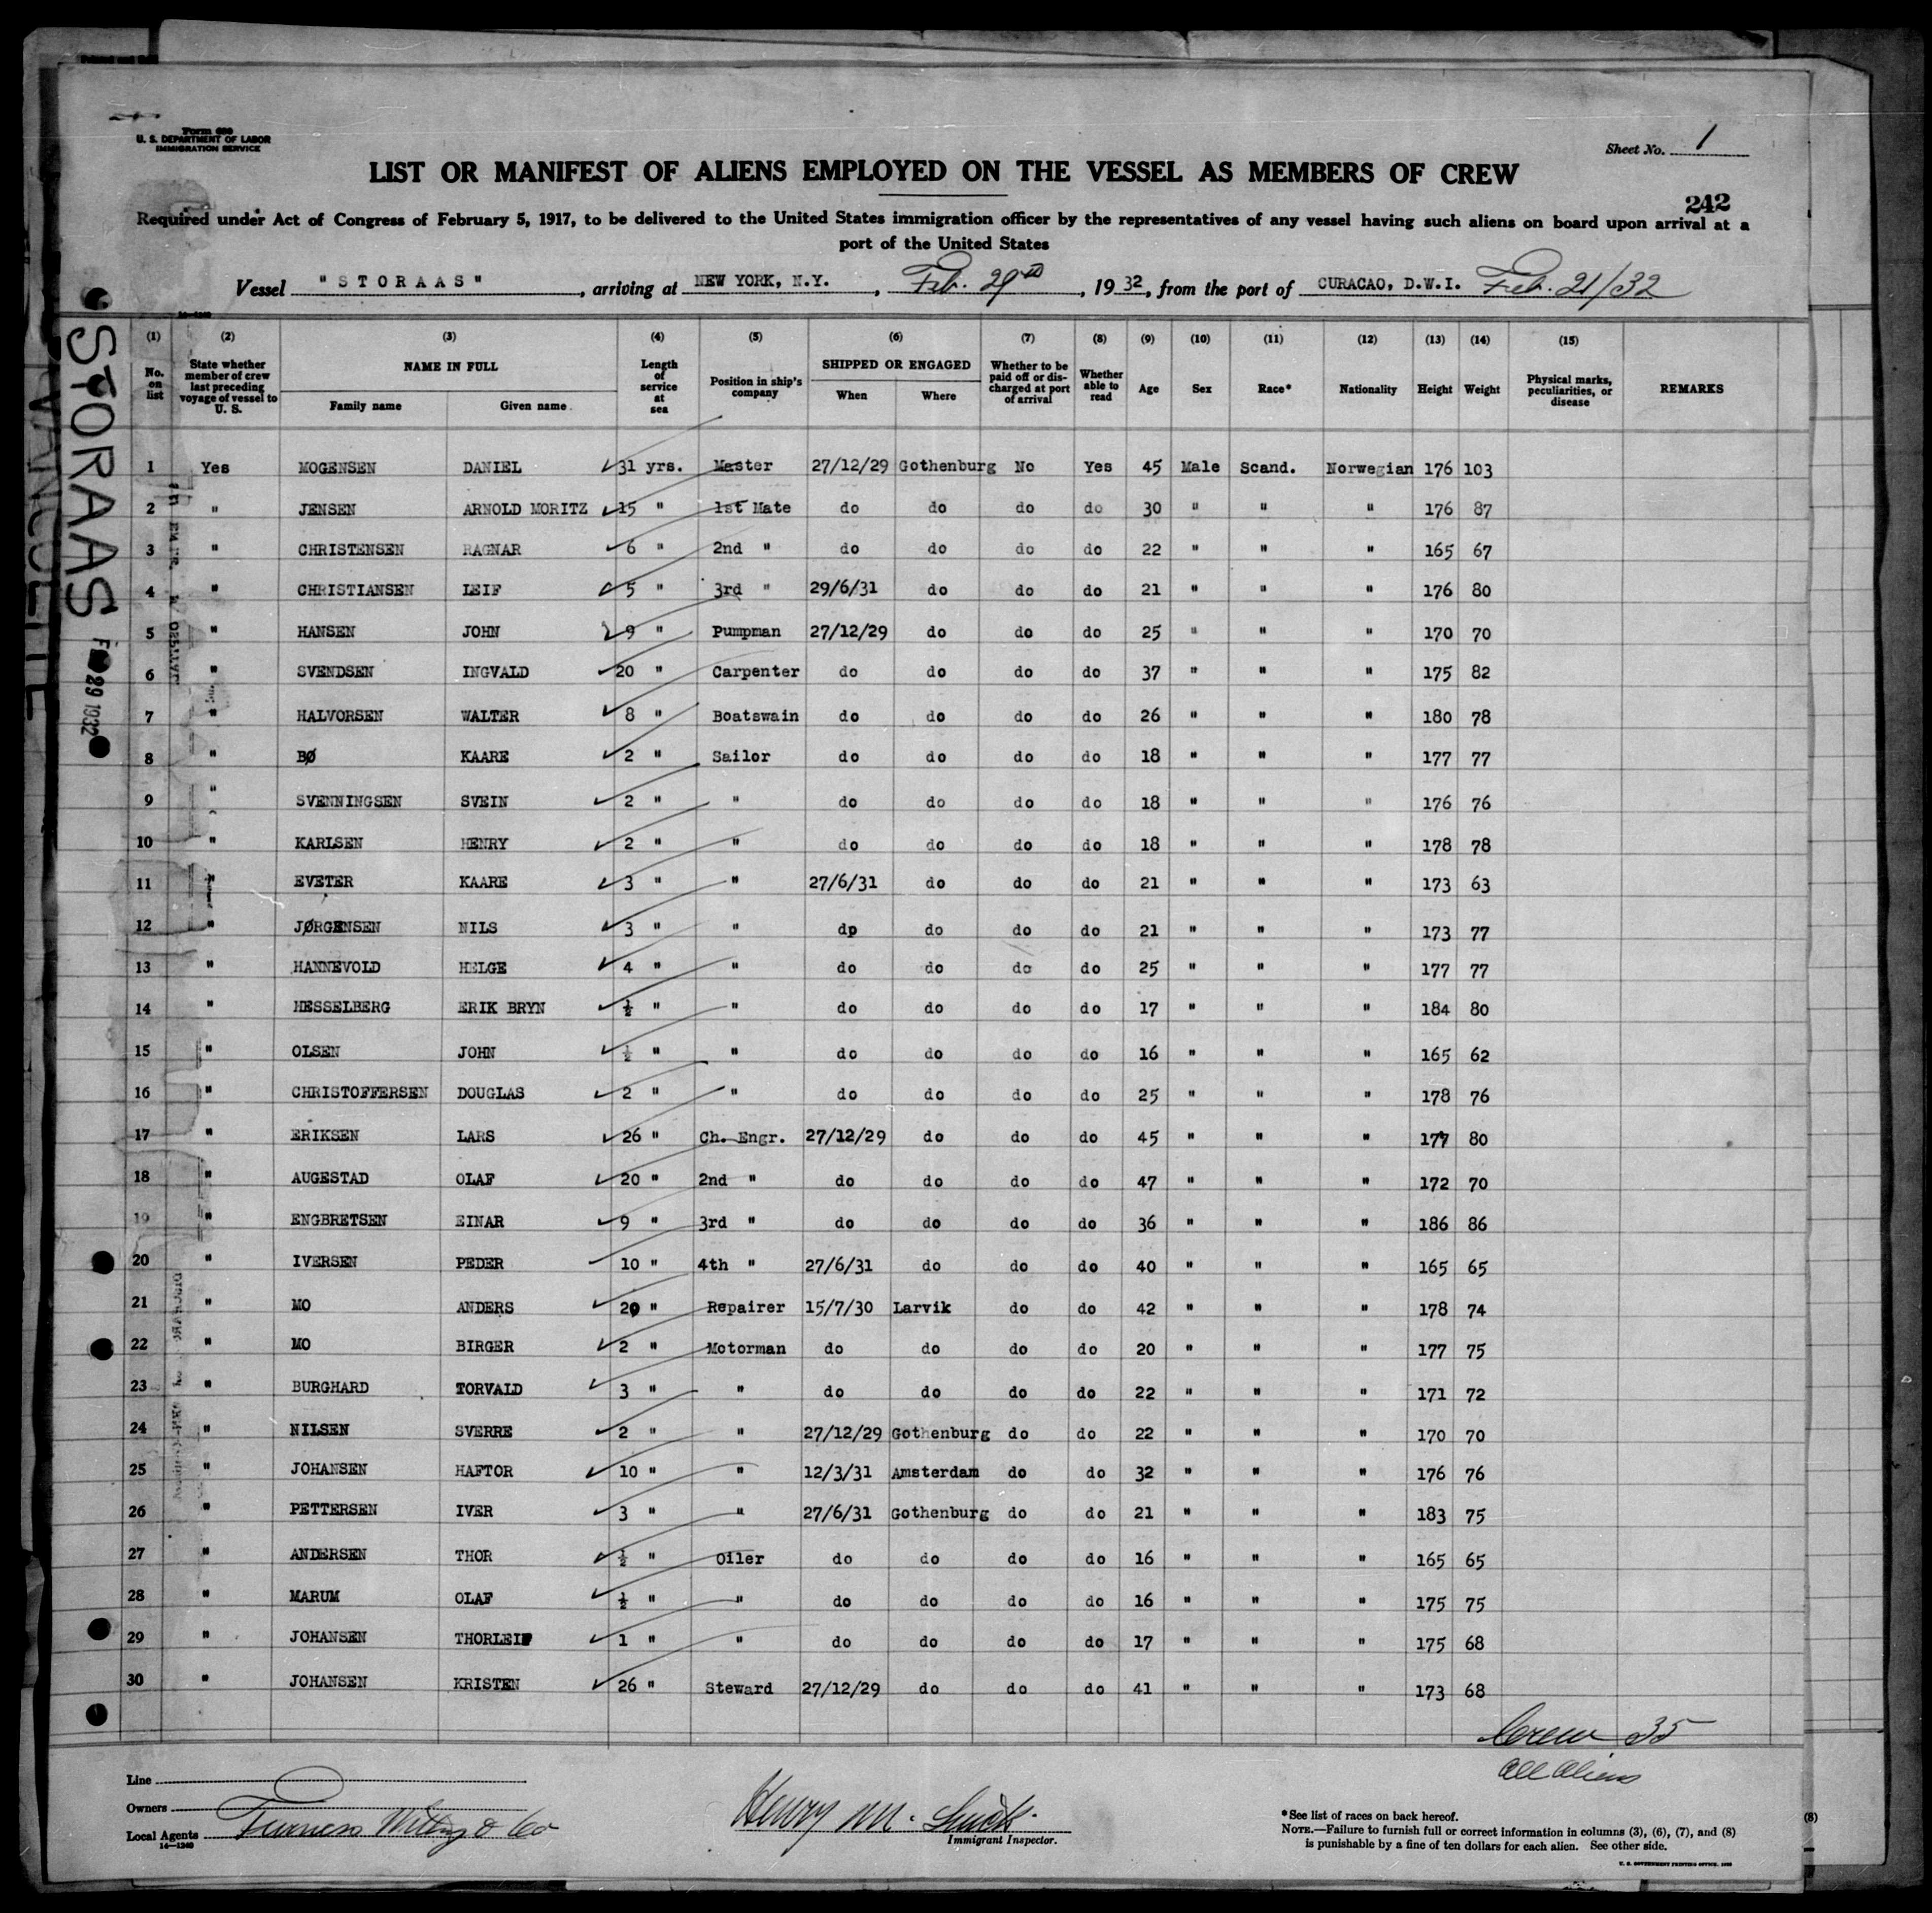 Form 680
U. S. DEPARTMENT OF LABOR
IMMIGRATION SERVICE
Sheet No. 1
LIST OR MANIFEST OF ALIENS EMPLOYED ON THE VESSEL AS MEMBERS OF CREW
242
Required under Act of Congress of February 5, 1917, to be delivered to the United States immigration officer by the representatives of any vessel having such aliens on board upon arrival at a
port of the United States
Vessel "STORAAS", arriving at NEW YORK, N.Y., Feb. 29th, 1932, from the port of CURACAO, D.W.I. Feb. 21/32
STORAAS
FEB 29 1932
(1) (2) (3) (4) (5) (6) (7) (8) (9) (10) (11) (12) (13) (14) (15)
No. on list | State whether member of crew last preceding voyage of vessel to U. S. | NAME IN FULL Family name Given name | Length of service at sea | Position in ship's company | SHIPPED OR ENGAGED When Where | Whether to be paid off or discharged at port of arrival | Whether able to read | Age | Sex | Race* | Nationality | Height | Weight | Physical marks, peculiarities, or disease | REMARKS
1 Yes MOGENSEN DANIEL 31 yrs. Master 27/12/29 Gothenburg No Yes 45 Male Scand. Norwegian 176 103
2 " JENSEN ARNOLD MORITZ 15 " 1st Mate do do do do 30 " " " 176 87
3 " CHRISTENSEN RAGNAR 6 " 2nd " do do do do 22 " " " 165 67
4 " CHRISTIANSEN LEIF 5 " 3rd " 29/6/31 do do do 21 " " " 176 80
5 " HANSEN JOHN 9 " Pumpman 27/12/29 do do do 25 " " " 170 70
6 " SVENDSEN INGVALD 20 " Carpenter do do do do 37 " " " 175 82
7 " HALVORSEN WALTER 8 " Boatswain do do do do 26 " " " 180 78
8 " BØ KAARE 2 " Sailor do do do do 18 " " " 177 77
9 " SVENNINGSEN SVEIN 2 " " do do do do 18 " " " 176 76
10 " KARLSEN HENRY 2 " " do do do do 18 " " " 178 78
11 " EVETER KAARE 3 " " 27/6/31 do do do 21 " " " 173 63
12 " JØRGENSEN NILS 3 " " do do do do 21 " " " 173 77
13 " HANNEVOLD HELGE 4 " " do do do do 25 " " " 177 77
14 " HESSELBERG ERIK BRYN ½ " " do do do do 17 " " " 184 80
15 " OLSEN JOHN ½ " " do do do do 16 " " " 165 62
16 " CHRISTOFFERSEN DOUGLAS 2 " " do do do do 25 " " " 178 76
17 " ERIKSEN LARS 26 " Ch. Engr. 27/12/29 do do do 45 " " " 177 80
18 " AUGESTAD OLAF 20 " 2nd " do do do do 47 " " " 172 70
19 " ENGBRETSEN EINAR 9 " 3rd " do do do do 36 " " " 186 86
20 " IVERSEN PEDER 10 " 4th " 27/6/31 do do do 40 " " " 165 65
21 " MO ANDERS 20 " Repairer 15/7/30 Larvik do do 42 " " " 178 74
22 " MO BIRGER 2 " Motorman do do do do 20 " " " 177 75
23 " BURGHARD TORVALD 3 " " do do do do 22 " " " 171 72
24 " NILSEN SVERRE 2 " " 27/12/29 Gothenburg do do 22 " " " 170 70
25 " JOHANSEN HAFTOR 10 " " 12/3/31 Amsterdam do do 32 " " " 176 76
26 " PETTERSEN IVER 3 " " 27/6/31 Gothenburg do do 21 " " " 183 75
27 " ANDERSEN THOR ½ " Oiler do do do do 16 " " " 165 65
28 " MARUM OLAF ½ " " do do do do 16 " " " 175 75
29 " JOHANSEN THORLEIF 1 " " do do do do 17 " " " 175 68
30 " JOHANSEN KRISTEN 26 " Steward 27/12/29 do do do 41 " " " 173 68
Crew 35
All Aliens
Line
Owners
Local Agents Furness Withy & Co
14—1240
Henry M. Smith
Immigrant Inspector.
*See list of races on back hereof.
NOTE.—Failure to furnish full or correct information in columns (3), (6), (7), and (8)
is punishable by a fine of ten dollars for each alien. See other side.
(8)